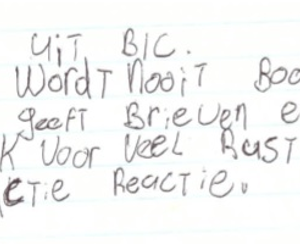 uit BIC.
Wordt nooit Boo
geeft Brieven e
k voor veel Rust
ctie Reactie.